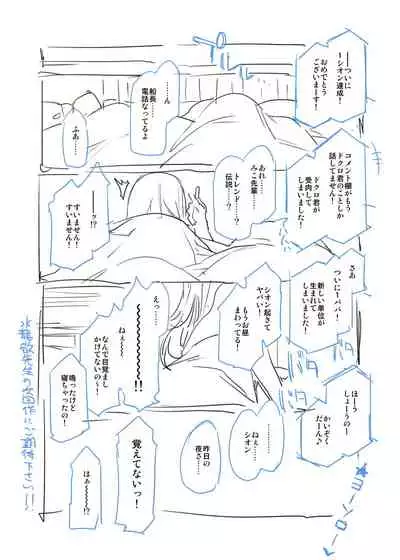 ――ついに
―シオン達成！
おめでとう
ございまーす！
……ん
船長…
電話なってるよ
ふあ…
コメント欄がもう
ドクロ君のことしか
話してません！
ドクロ君が
受肉して
しまいました！
あれ…
みこ先輩…
トレンド……？
伝説…？
――！？
すいません！
すいません！
さあ
ついに1パー！
新しい単位が
生まれて
しまいました！
シオン起きて
ヤバい！
もうお昼
まわってる！
えっ……
ねぇ～～
～～～～!!
なんで目覚まし
かけてないの～！
鳴ったけど
寝ちゃったの！
バタ
バタ
ほーう
しょーうのー
かいぞく
だーん♪
★ヨーソロー
ねぇ…
シオン
昨日の
夜さ…
覚えてないっ！
はぁ～～～～!?
先生の次回作にご期待下さい!!